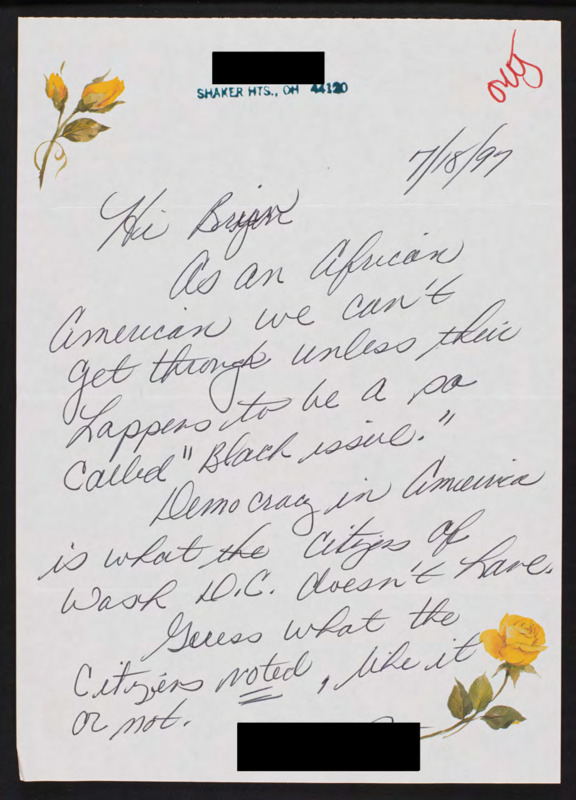 SHAKER HTS., OH 44120
out
7/18/97
Hi Brian
As an African
American we can't
get through unless their
happens to be a so
called "Black issue."
Democracy in America
is what the Citizens of
Wash D.C. doesn't have.
Guess what the
Citizens voted, like it
or not.